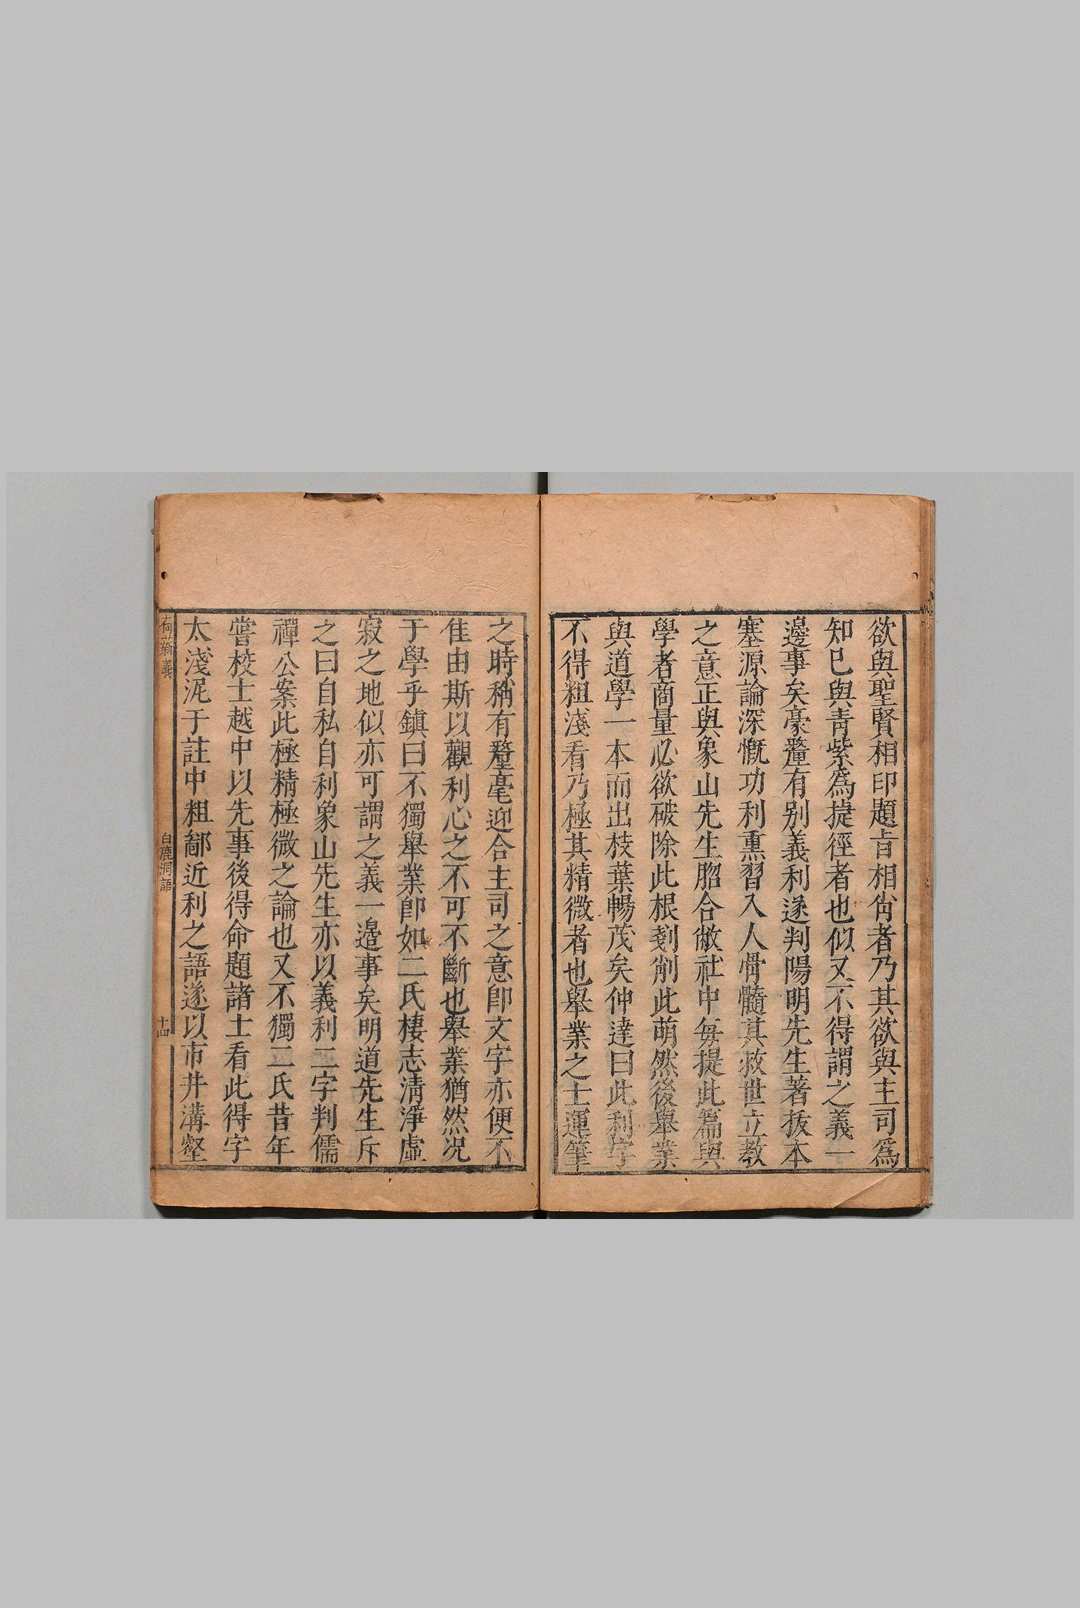 欲與聖賢相印題旨相肖者乃其欲與主司為
知己與青紫為捷徑者也似又不得謂之義一
邊事矣豪釐有別義利遂判陽明先生著拔本
塞源論深慨功利熏習入人骨髓其救世立教
之意正與象山先生脗合敝社中每提此篇與
學者商量必欲破除此根剗削此萌然後舉業
與道學一本而出枝葉暢茂矣仲達曰此利字
不得粗淺看乃極其精微者也舉業之士運筆
之時稍有釐毫迎合主司之意即文字亦便不
佳由斯以觀利心之不可不斷也舉業猶然况
于學乎鎮曰不獨舉業即如二氏棲志清淨虛
寂之地似亦可謂之義一邊事矣明道先生斥
之曰自私自利象山先生亦以義利二字判儒
禪公案此極精極微之論也又不獨二氏昔年
嘗校士越中以先事後得命題諸士看此得字
太淺泥于註中粗鄙近利之語遂以市井溝壑
白鹿洞語
十四